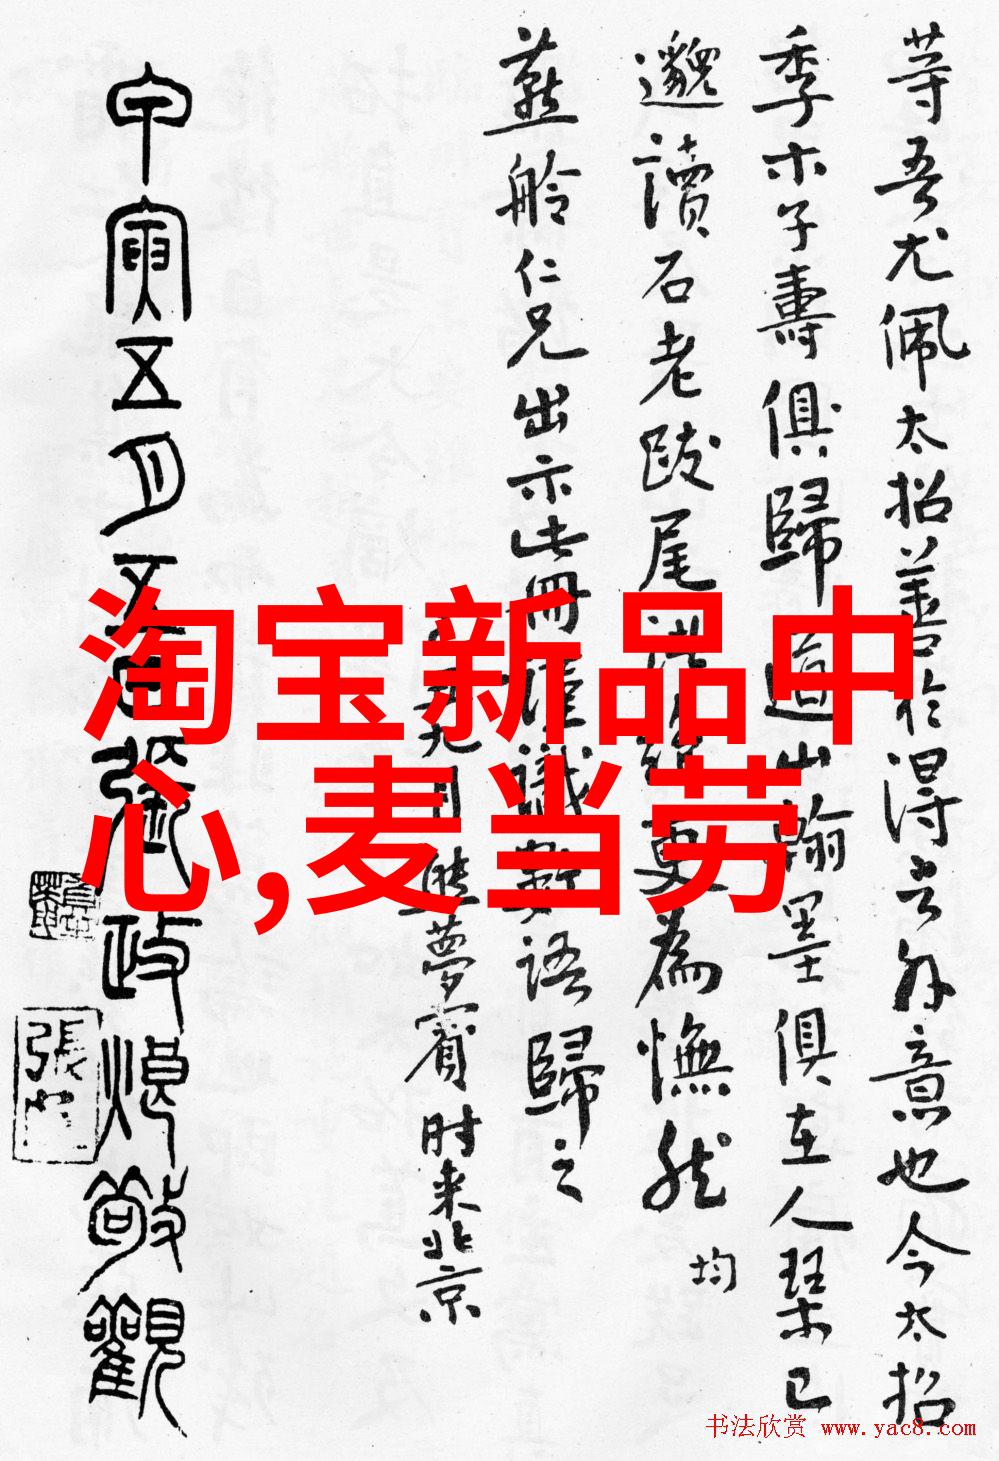 等吾尤佩太招善於得言外意也今太招
季木子壽俱歸道山翰墨俱在人琴已
邈讀石老跋尾
更為憮然 均
燕舲仁兄出示此冊
識數語歸之
夢賓時来北京
甲寅五月五日張政烺敬觀
淘宝新品中
心,麦当劳
張
书法欣赏 www.yac8.com